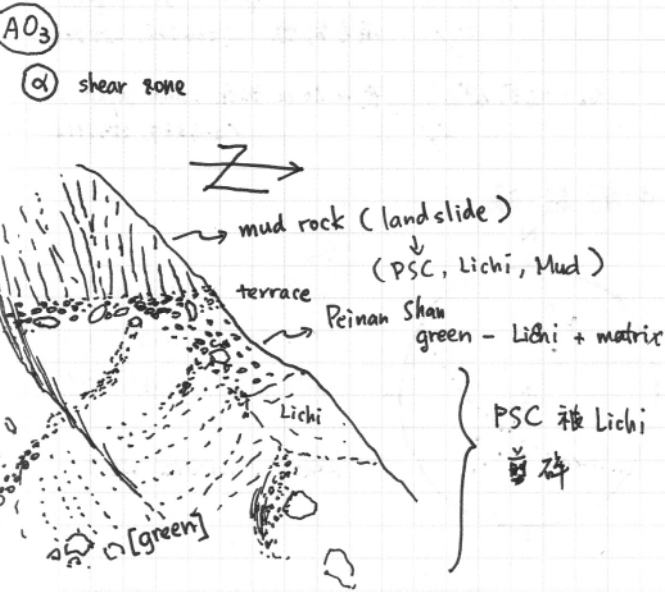 AO3
α shear zone
Z
mud rock (landslide)
(PSC, Lichi, Mud)
terrace
Peinan Shan
green - Lichi + matrix
Lichi
PSC 被 Lichi
剪碎
[green]